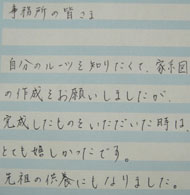 事務所の皆さま
自分のルーツを知りたくて、家系図
の作成をお願いしましたが、
完成したものをいただいた時は
とても嬉しかったです。
先祖の供養にもなりました。